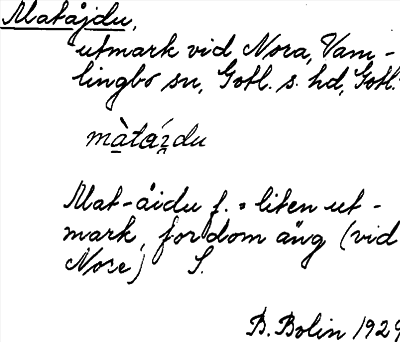 Matåjdu,
utmark vid Nora, Vam-
lingbo sn, Gotl. s. hd, Gotl.
màtázdu
Mat-åidu f. = liten ut-
mark, fordom äng (vid
Nore) S.
B. Bolin 1929